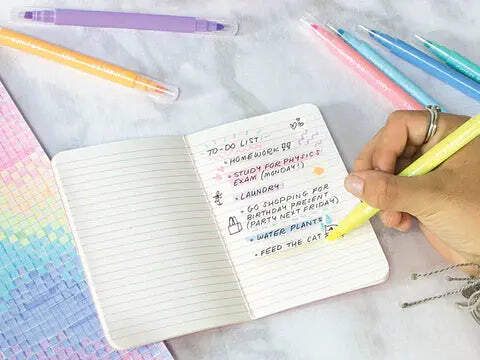 TO-DO LIST:
• HOMEWORK !!
• STUDY FOR PHYSICS
EXAM (MONDAY!)
• LAUNDRY
• GO SHOPPING FOR
BIRTHDAY PRESENT
(PARTY NEXT FRIDAY)
• WATER PLANTS
• FEED THE CAT